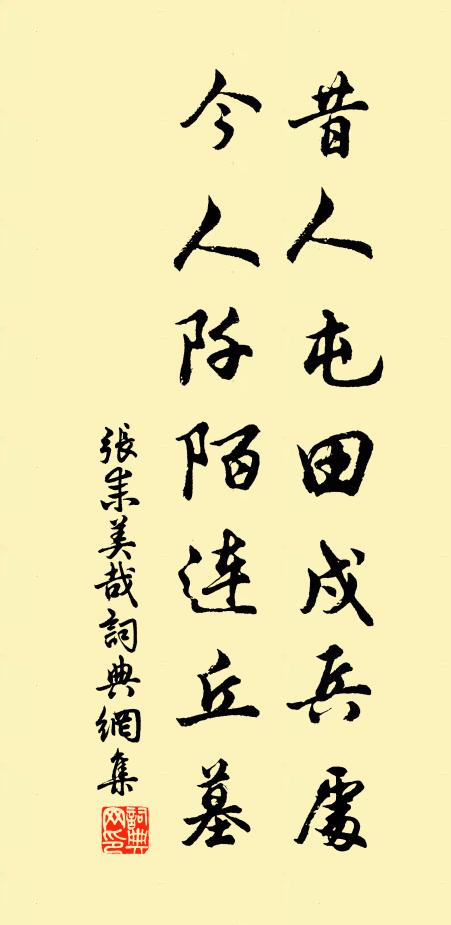 昔人屯田戍兵處
今人阡陌連丘墓
張耒美哉詞典網集
詞典网印